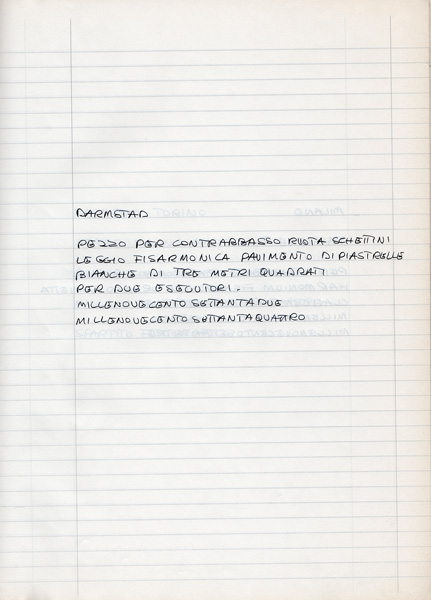 DARMSTAD
PEZZO PER CONTRABBASSO RUOTA SCHETTINI
LEGGIO FISARMONICA PAVIMENTO DI PIASTRELLE
BIANCHE DI TRE METRI QUADRATI
PER DUE ESECUTORI.
MILLENOVECENTO SETTANTADUE
MILLENOVECENTO SETTANTAQUATTRO